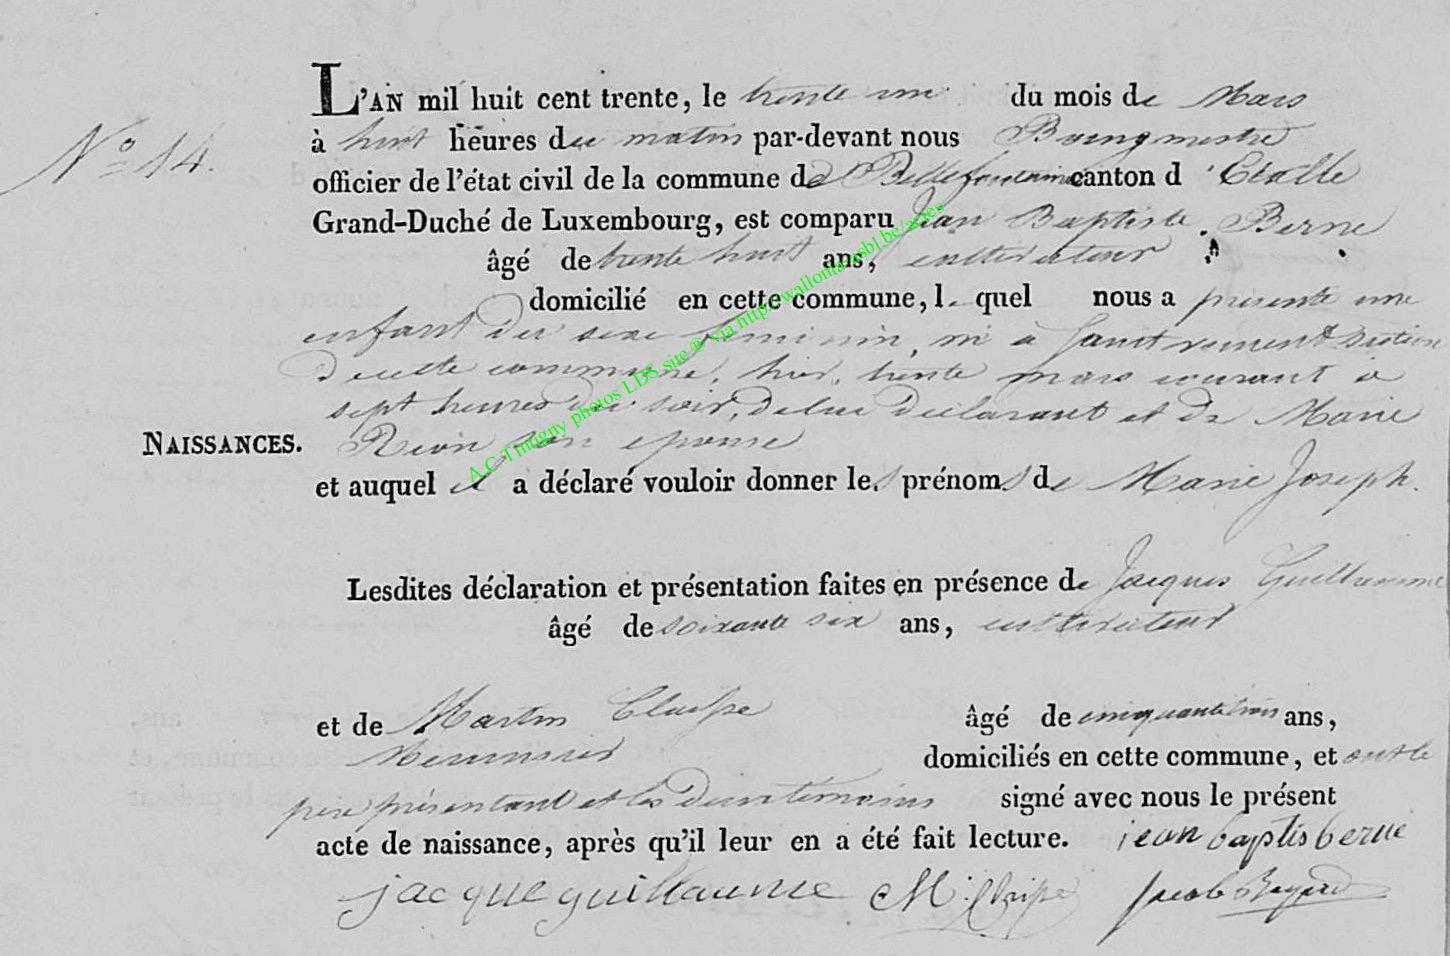 L'AN mil huit cent trente, le trente un du mois de Mars
N° 14.
à huit heures du matin par-devant nous Bourgmestre
officier de l'état civil de la commune de Bellefontaine canton d'Etalle
Grand-Duché de Luxembourg, est comparu Jean Baptiste Berne
âgé de trente huit ans, cultivateur
domicilié en cette commune, le quel nous a présenté une
enfant du sexe féminin, né à Saint vincent section
de cette commune, hier, trente mars courant à
sept heures du soir, de lui déclarant et de Marie
NAISSANCES.
son epouse
et auquel il a déclaré vouloir donner les prénoms de Marie Joseph.
Lesdites déclaration et présentation faites en présence de Jacques Guillaume
âgé de soixante six ans, cultivateur
et de Martin Claisse âgé de cinquante trois ans,
Menuisier domiciliés en cette commune, et ont le
père présentant et les deux témoins signé avec nous le présent
acte de naissance, après qu'il leur en a été fait lecture. jean baptis berne
jacque guillaume M. Jacob
A.C. Tintigny photos LDS site ® via http://wallonia.asbl.be/actes